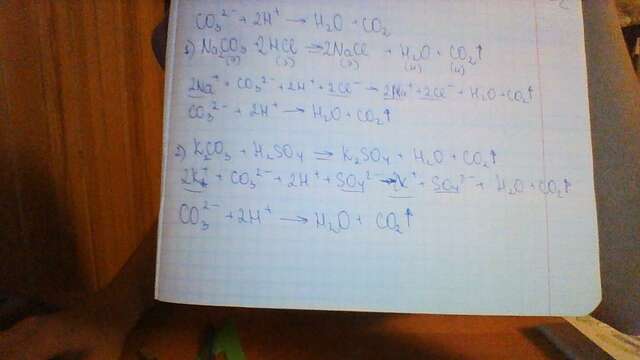 CO₃²⁻ + 2H⁺ → H₂O + CO₂
1) Na₂CO₃ + 2HCl = 2NaCl + H₂O + CO₂↑
2Na⁺ + CO₃²⁻ + 2H⁺ + 2Cl⁻ → 2Na⁺ + 2Cl⁻ + H₂O + CO₂↑
CO₃²⁻ + 2H⁺ → H₂O + CO₂↑
2) K₂CO₃ + H₂SO₄ = K₂SO₄ + H₂O + CO₂↑
2K⁺ + CO₃²⁻ + 2H⁺ + SO₄²⁻ → 2K⁺ + SO₄²⁻ + H₂O + CO₂↑
CO₃²⁻ + 2H⁺ → H₂O + CO₂↑